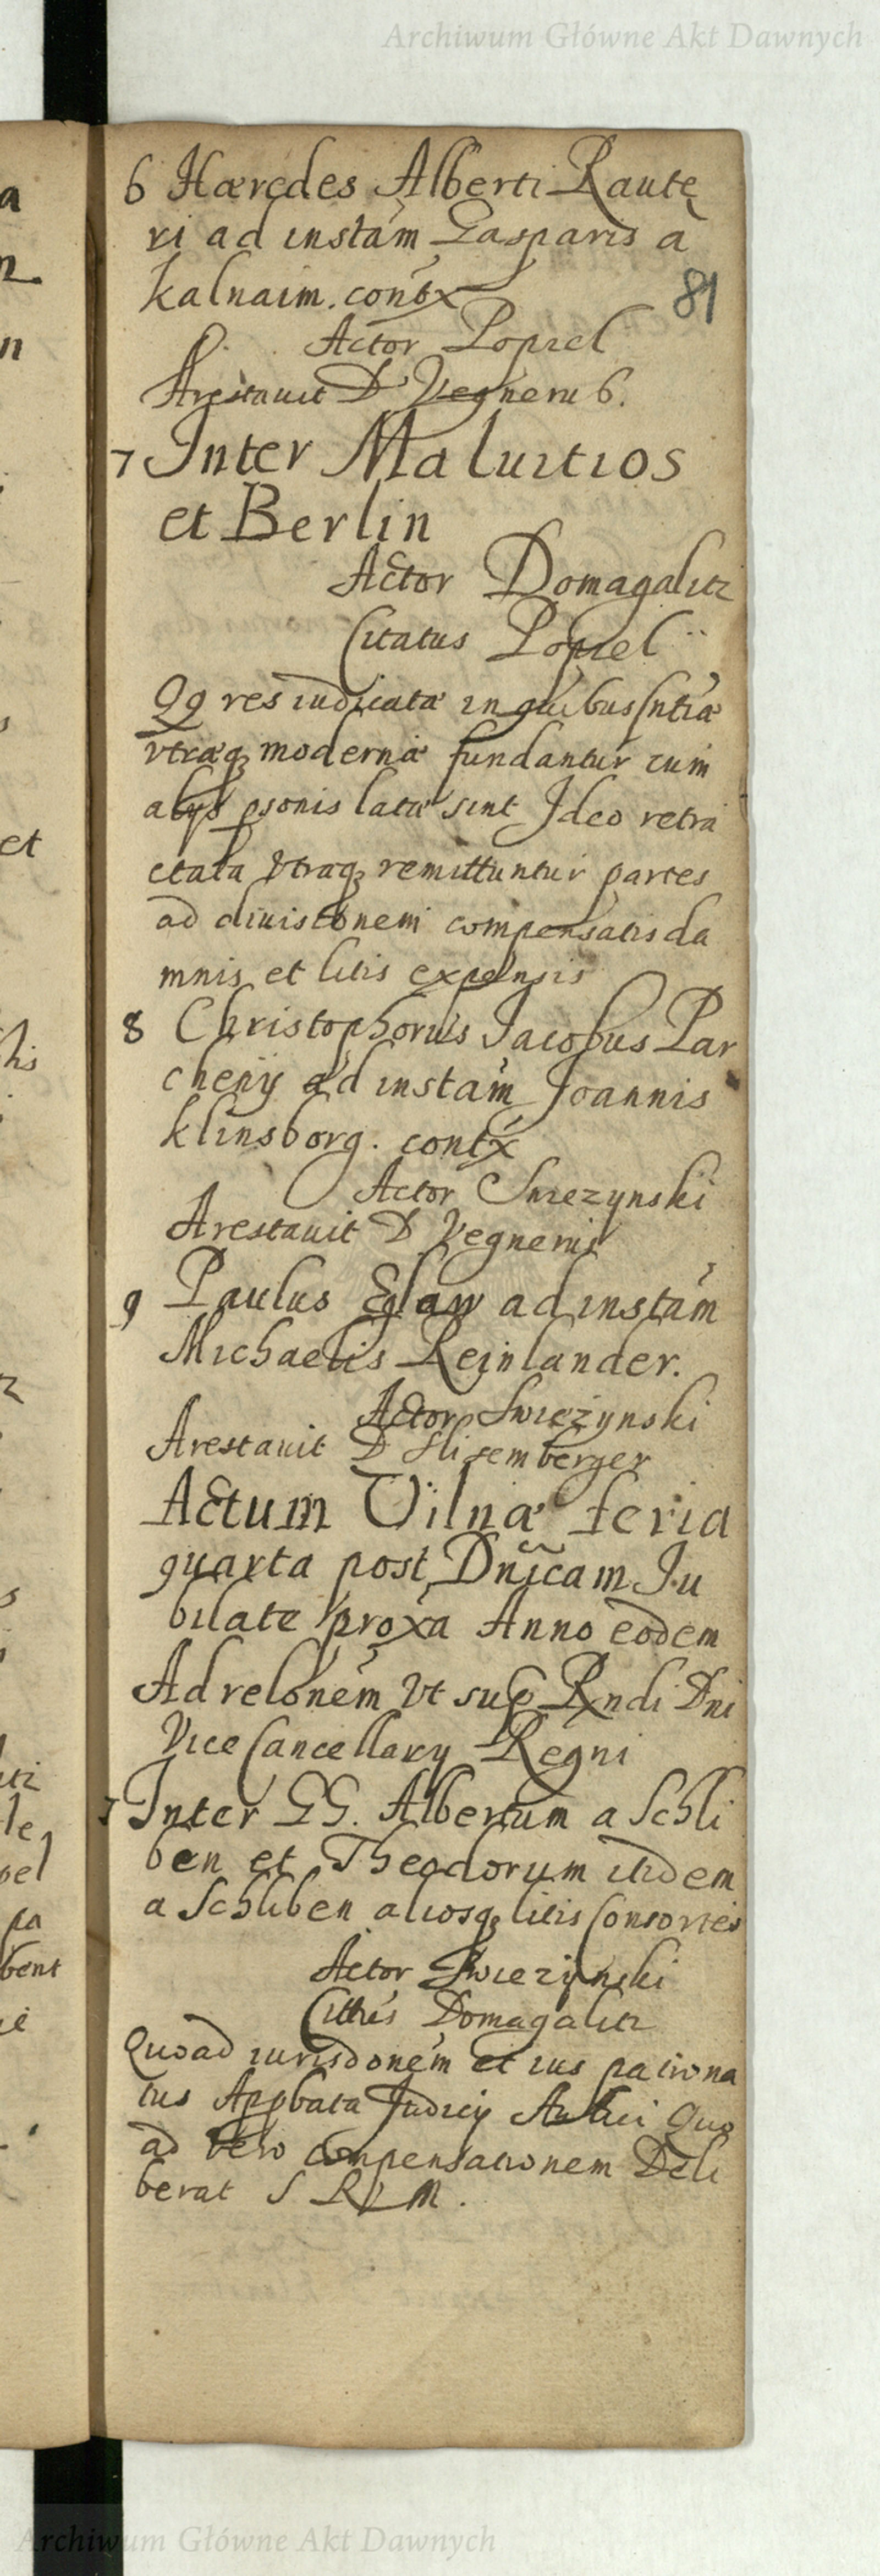 Archiwum Główne Akt Dawnych
6 Hæredes Alberti Raute
ri ad instam Gasparis à
Kalnaim. contx
81
Actor Popiel
Arestauit D Vegneru 6.
7 Inter Maluitios
et Berlin
Actor Domagalitz
Citatus Popiel
Qq res iudicatæ in quibus sntiæ
vtræq modernæ fundantur cum
alijs psonis latæ sint Ideo retra
ctata vtraq remittuntur partes
ad diuisionem compensatis da
mnis et litis expensis
8 Christophorus Jacobus Par
chenÿ ad instam Joannis
Klinsborg. contx
Actor Swiezynski
Arestauit D Vegnerus
9 Paulus Eglaw ad instam
Michaelis Reinlander.
Actor Swieżynski
Arestauit D Slisemberger
Actum Vilnæ feria
quarta post Dnicam Ju
bilate proxa Anno eodem
Ad relonem vt sup Rndi Dni
Vice Cancellarÿ Regni
1 Inter GG. Albertum a Schli
ben et Theodorum itidem
a Schliben aliosq litis Consortes
Actor Swiezÿnski
Cittus Domagalitz
Quoad iurisdonem et ius patrona
tus Appbata Judicÿ Aulici Quo
ad vero compensationem Deli
berat S R M.
et
his
le
pel
pa
bent
Archiwum Główne Akt Dawnych